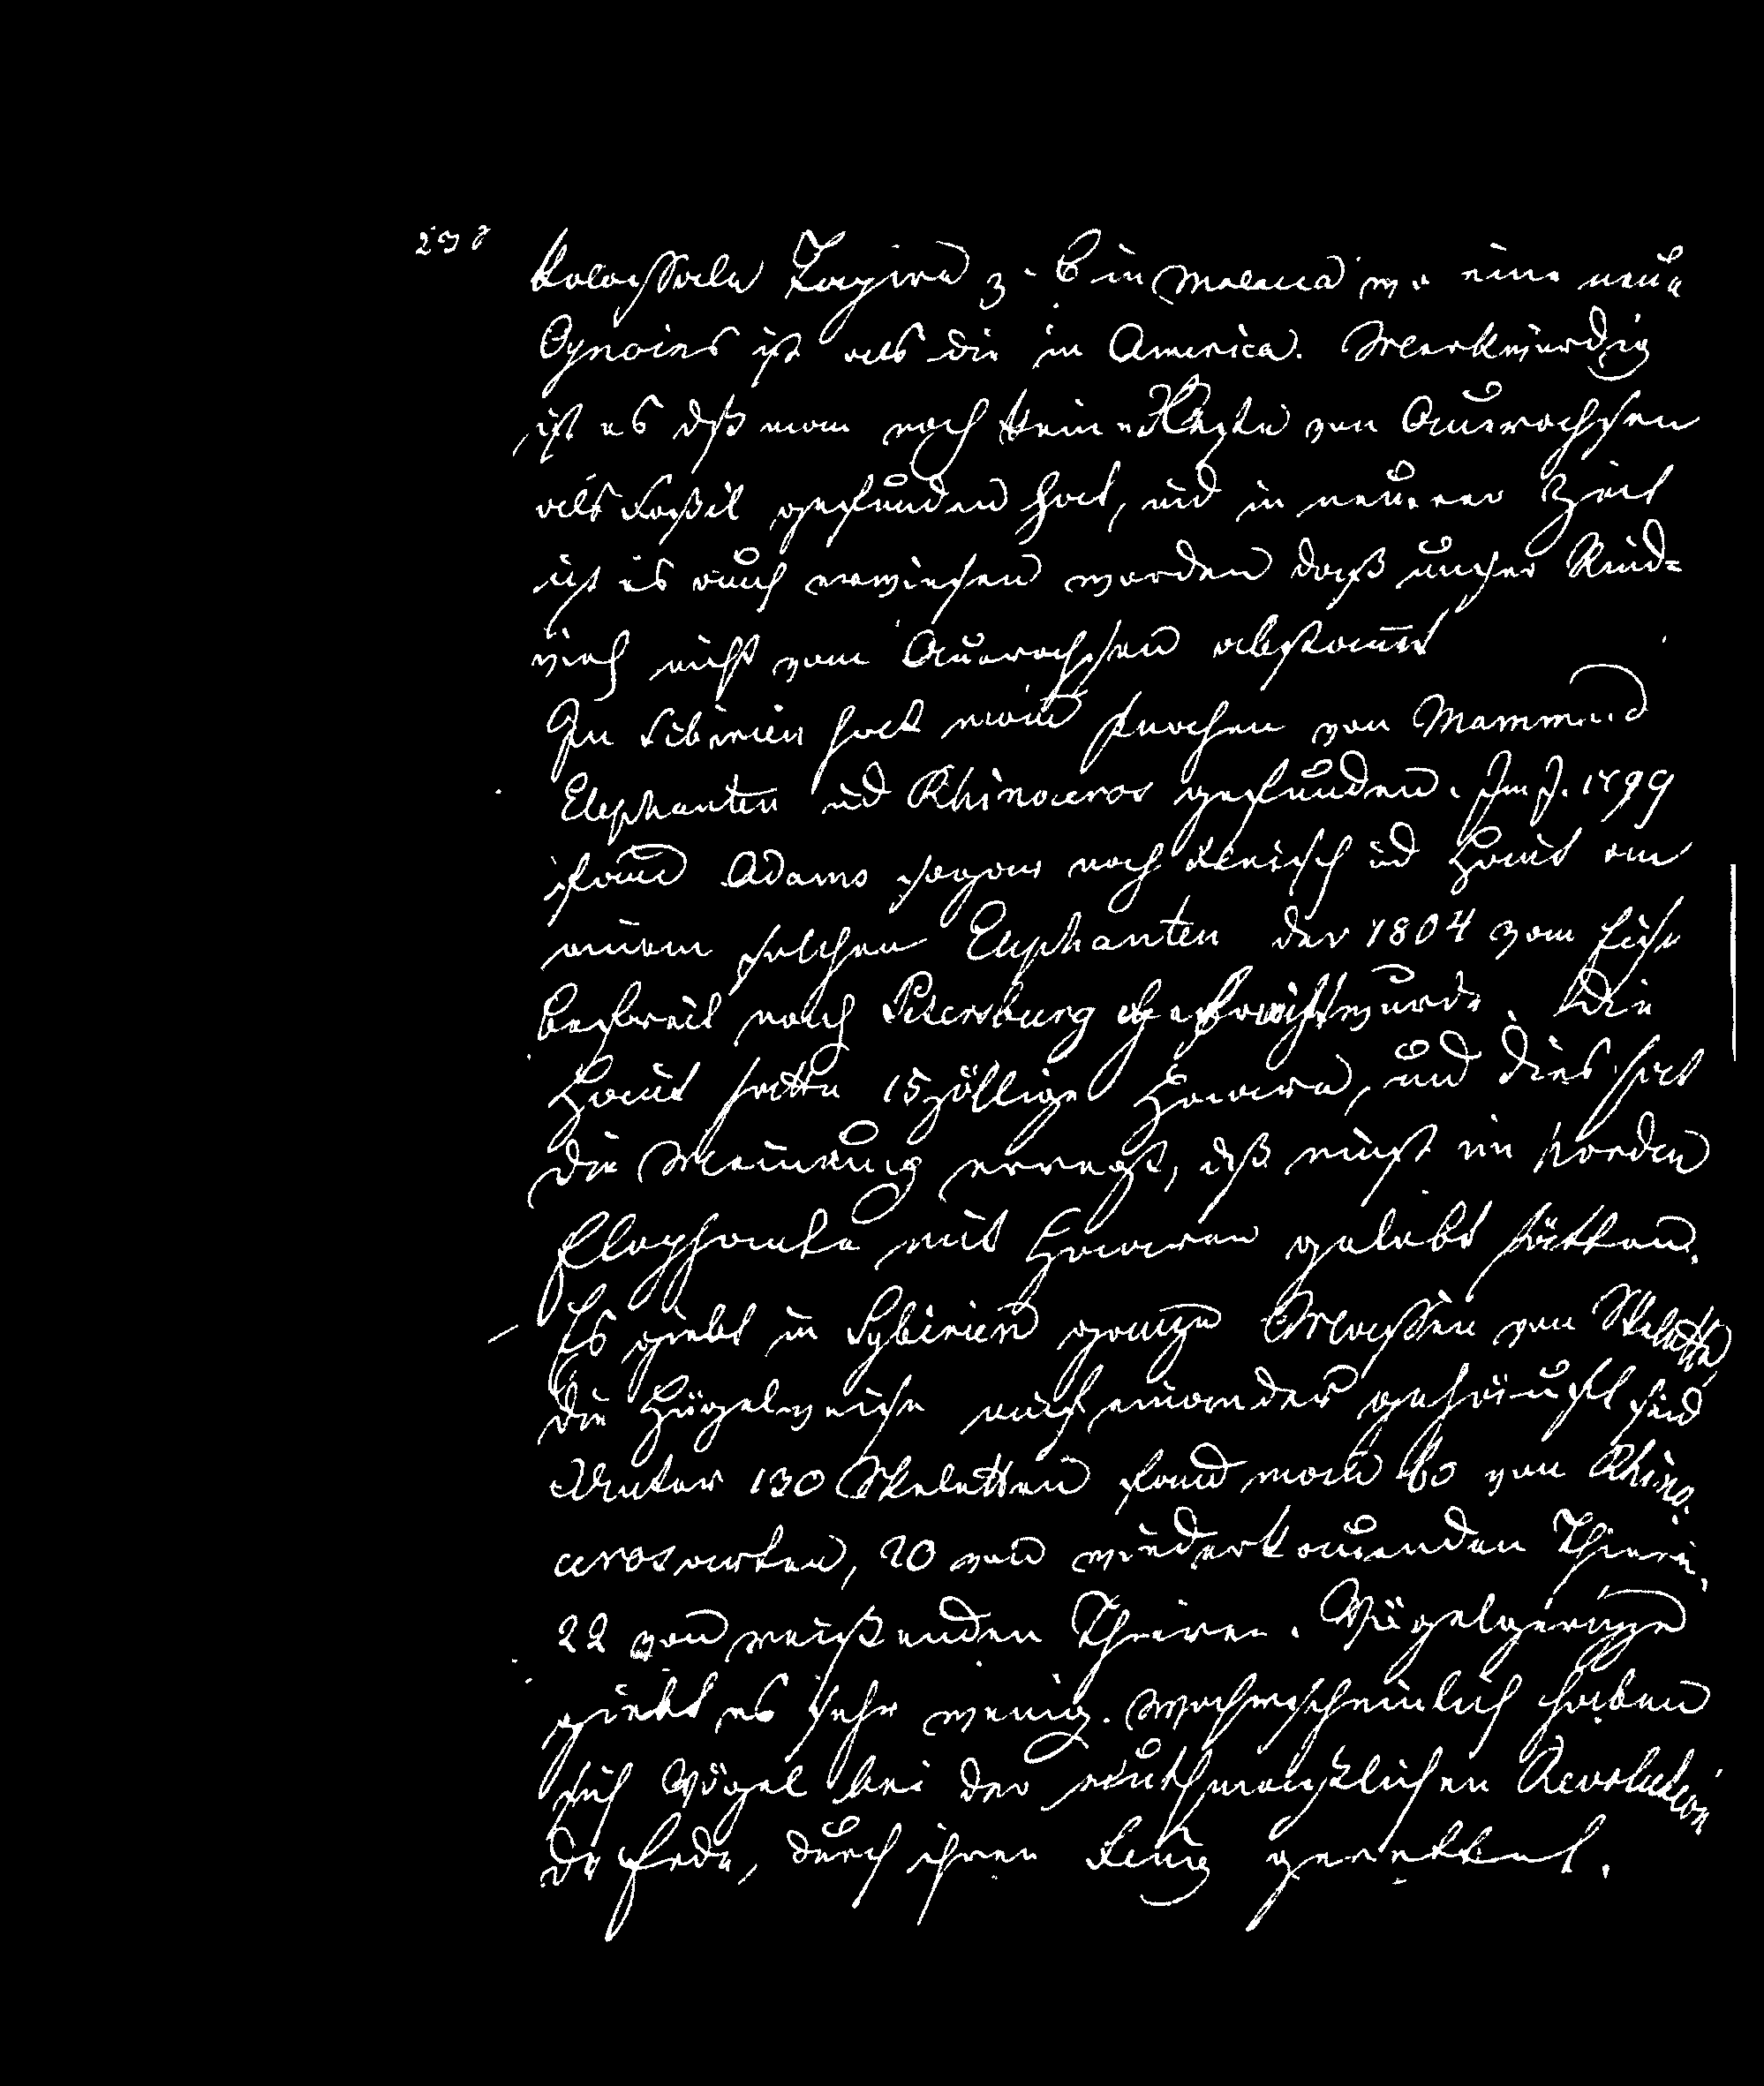 238
kolossale Tapire z. B in Malacca wo eine neue
Species ist als die in America. Merkwürdig
ist es dß man noch keine Reste von Auerochsen
als Foßil gefunden hat, und in neuerer Zeit
ist es auch erwiesen worden daß unser Rind-
vieh nicht vom Auerochsen abstamt
In Sibirien hat man Knochen von Mammud
Elephanten und Rhinoceros gefunden. Im J. 1799
fand Adams sogar noch Fleisch und Haut an
einem solchen Elephanten der 1804 vom Eise
befreit nach Petersburg geschafft wurde. Die
Haut hatte 15zöllige Haare, und dies hat
die Meinung erregt, dß einst im Norden
Elephanten mit Haaren gelebt hätten.
Es giebt in Sybirien ganze Massen von Skelette
die Hügelweise auf einander gehäuft sind
Unter 130 Skeletten fand man 60 von Rhino-
cerosarten, 20 von wiederkäuenden Thieren,
22 von reißenden Thieren. Vögelgerippe
giebt es sehr wenig. Wahrscheinlich haben
sich Vögel bei der muthmaßlichen Revolution
der Erde, durch ihren Flug gerettet.